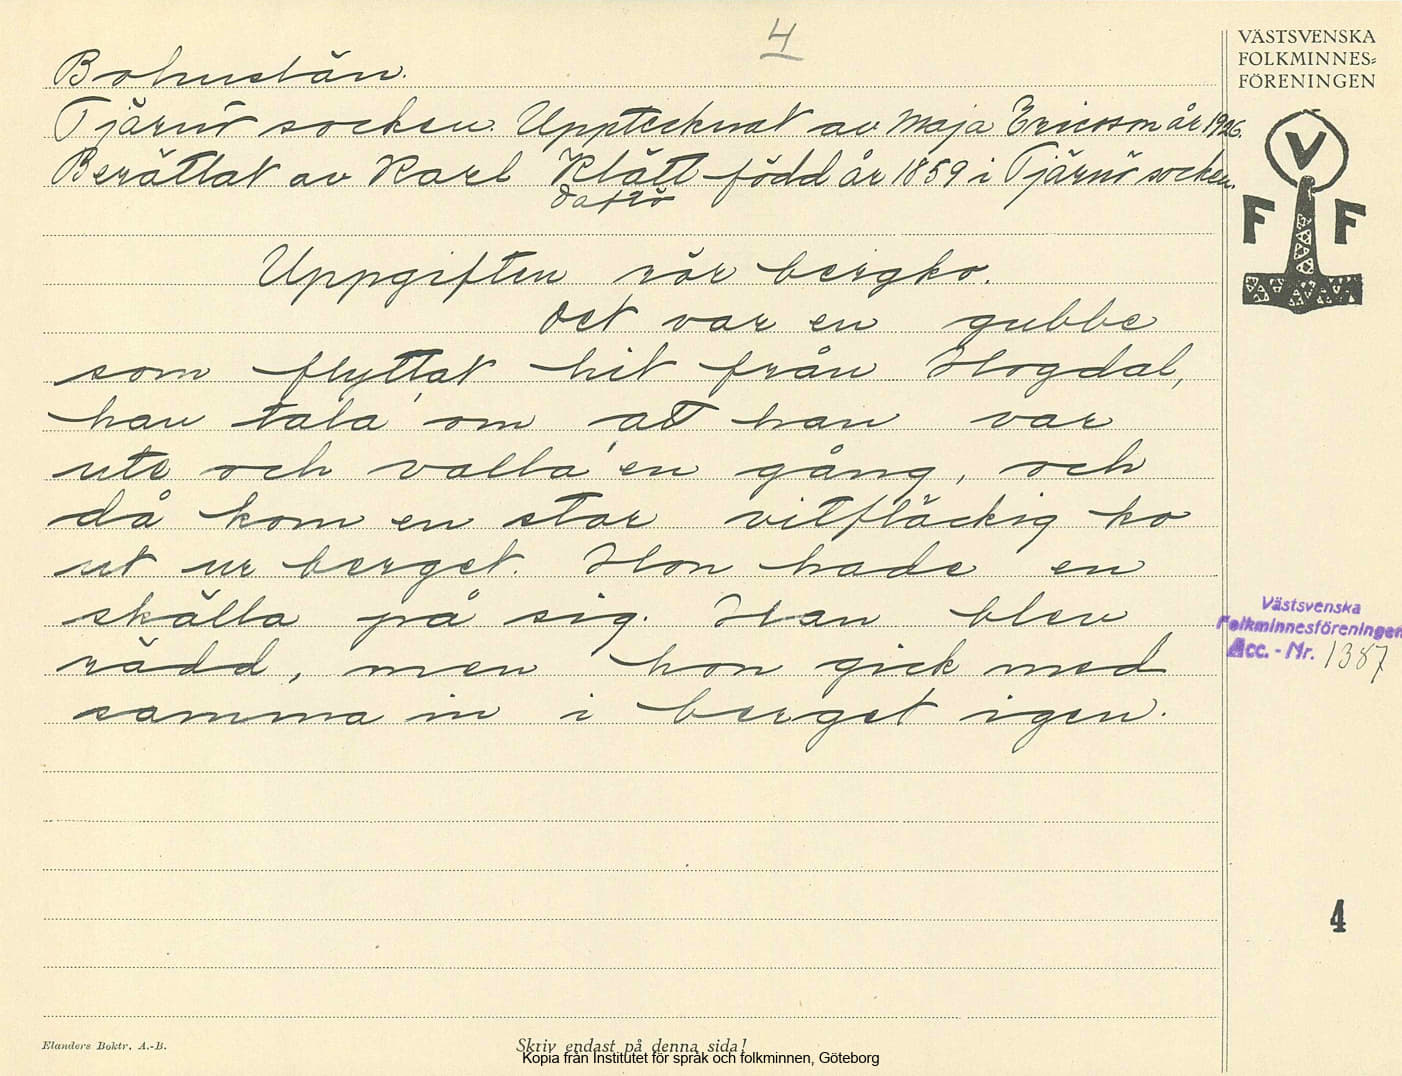 4
Bohuslän.
Tjärnö socken. Upptecknat av Maja Ericsson år 1926.
Berättat av Karl Klätt född år 1859 i Tjärnö socken.
Daftö
Uppgiften rör bergko.
Det var en gubbe
som flyttat hit från Hogdal,
han tala' om att han var
ute och valla' en gång, och
då kom en stor vitfläckig ko
ut ur berget. Hon hade en
skälla på sig. Han blev
rädd, men hon gick med
samma in i berget igen.
VÄSTSVENSKA
FOLKMINNES=
FÖRENINGEN
V
F F
Västsvenska
Folkminnesföreningen
Acc. - Nr. 1387
4
Elanders Boktr. A.-B.
Skriv endast på denna sida!
Kopia från Institutet för språk och folkminnen, Göteborg